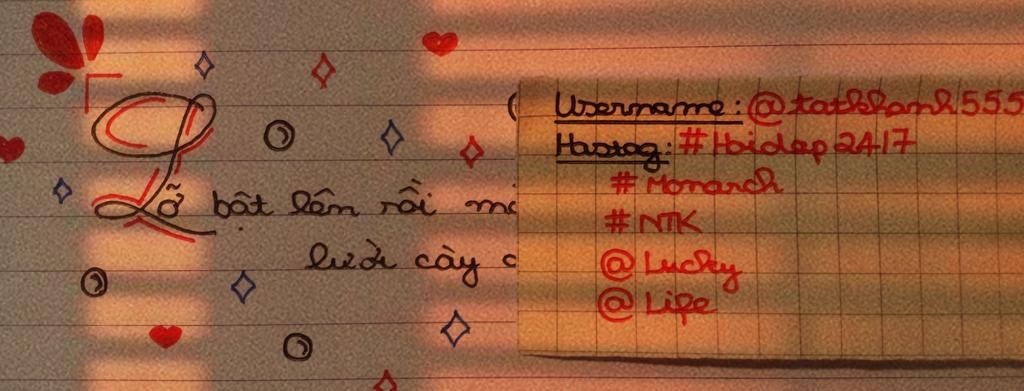 Lỡ bật lên rồi
lười cày
Username: @tatkhanh555
Hastag: #Hoidap247
#Monarch
#NTK
@Lucky
@Life